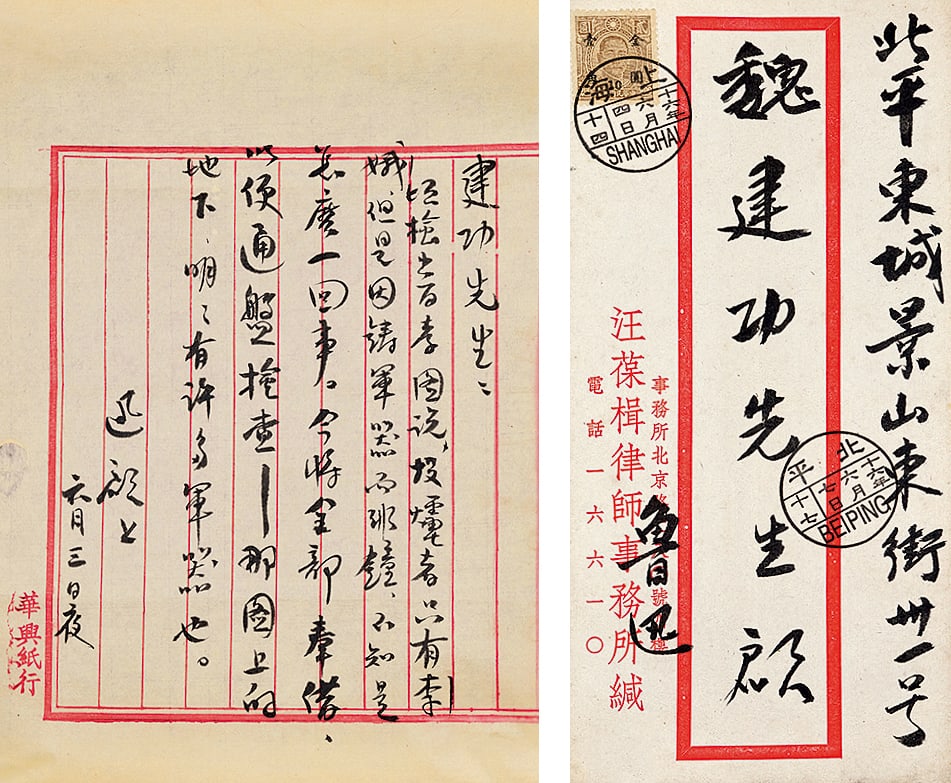 建功先生：
頃檢出百孝圖說，投爐者只有李
娥，但是因鑄軍器而非鐘，不知是
怎麼一回事。今將全部奉借、
以便通盤檢查——那圖上的
地下、明々有許多軍器也。
迅 啟上
六月三日夜
華興紙行
北平東城景山東街卅一号
魏建功先生啟
事務所北京路
汪葆楫律師事務所緘
電話一六六一〇
魯迅
上海
十六年
六月
四日
十四
SHANGHAI
北平
十六年
六月
七日
十七
BEIPING